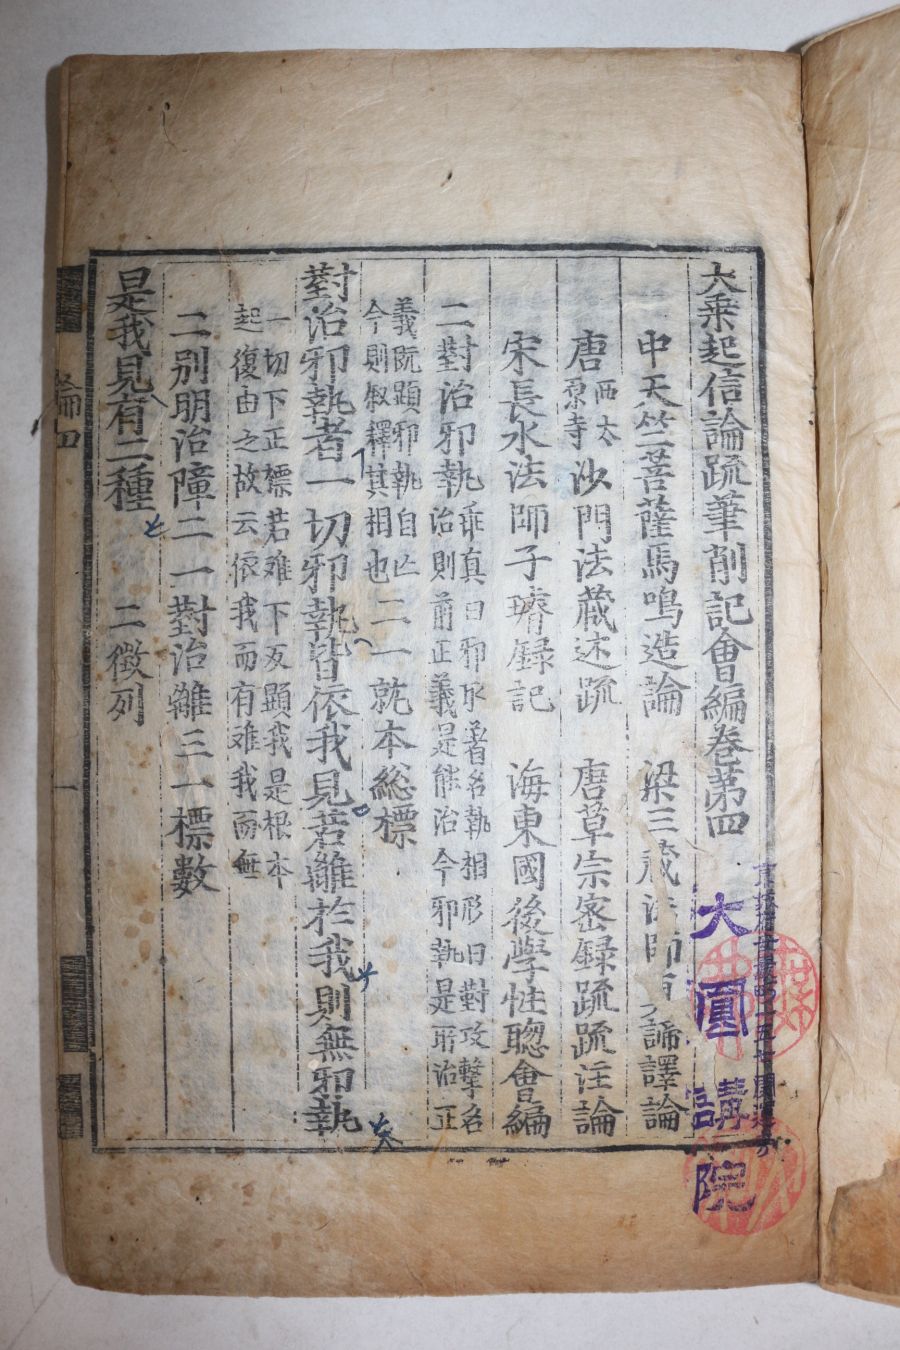 大乗起信論疏筆削記會編卷第四
中天竺菩薩馬鳴造論 梁三藏法師 諦譯論
唐 西太原寺 沙門法藏述疏 唐草宗密録疏疏注論
宋長水法師子璿録記 海東國後學性聰會編
二對治邪執 乖真曰邪取著名執相形曰對攻擊名
治則前正義是能治今邪執是所治正
義既顯邪執自亡
今則叙釋其相也 二一就本総標
對治邪執者一切邪執皆依我見若離於我則無邪執
一切下正標若难下反顯我是根本
起復由之故云依我而有难我而無
二別明治障二一對治離三一標數
是我見有二種 二徵列
論四
一
大圓講院